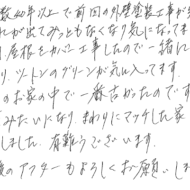 数40年以上で前回の外壁塗装工事が
れが出てみっともなくなり気になってま
り屋根をカバー工事したので一緒に
り、ツートンのグリーンが気に入ってます。
のお家の中で一番古かったのです
みたいになり、まわりにマッチした家
しました。有難うございます。
後のアフターもよろしくお願いしま